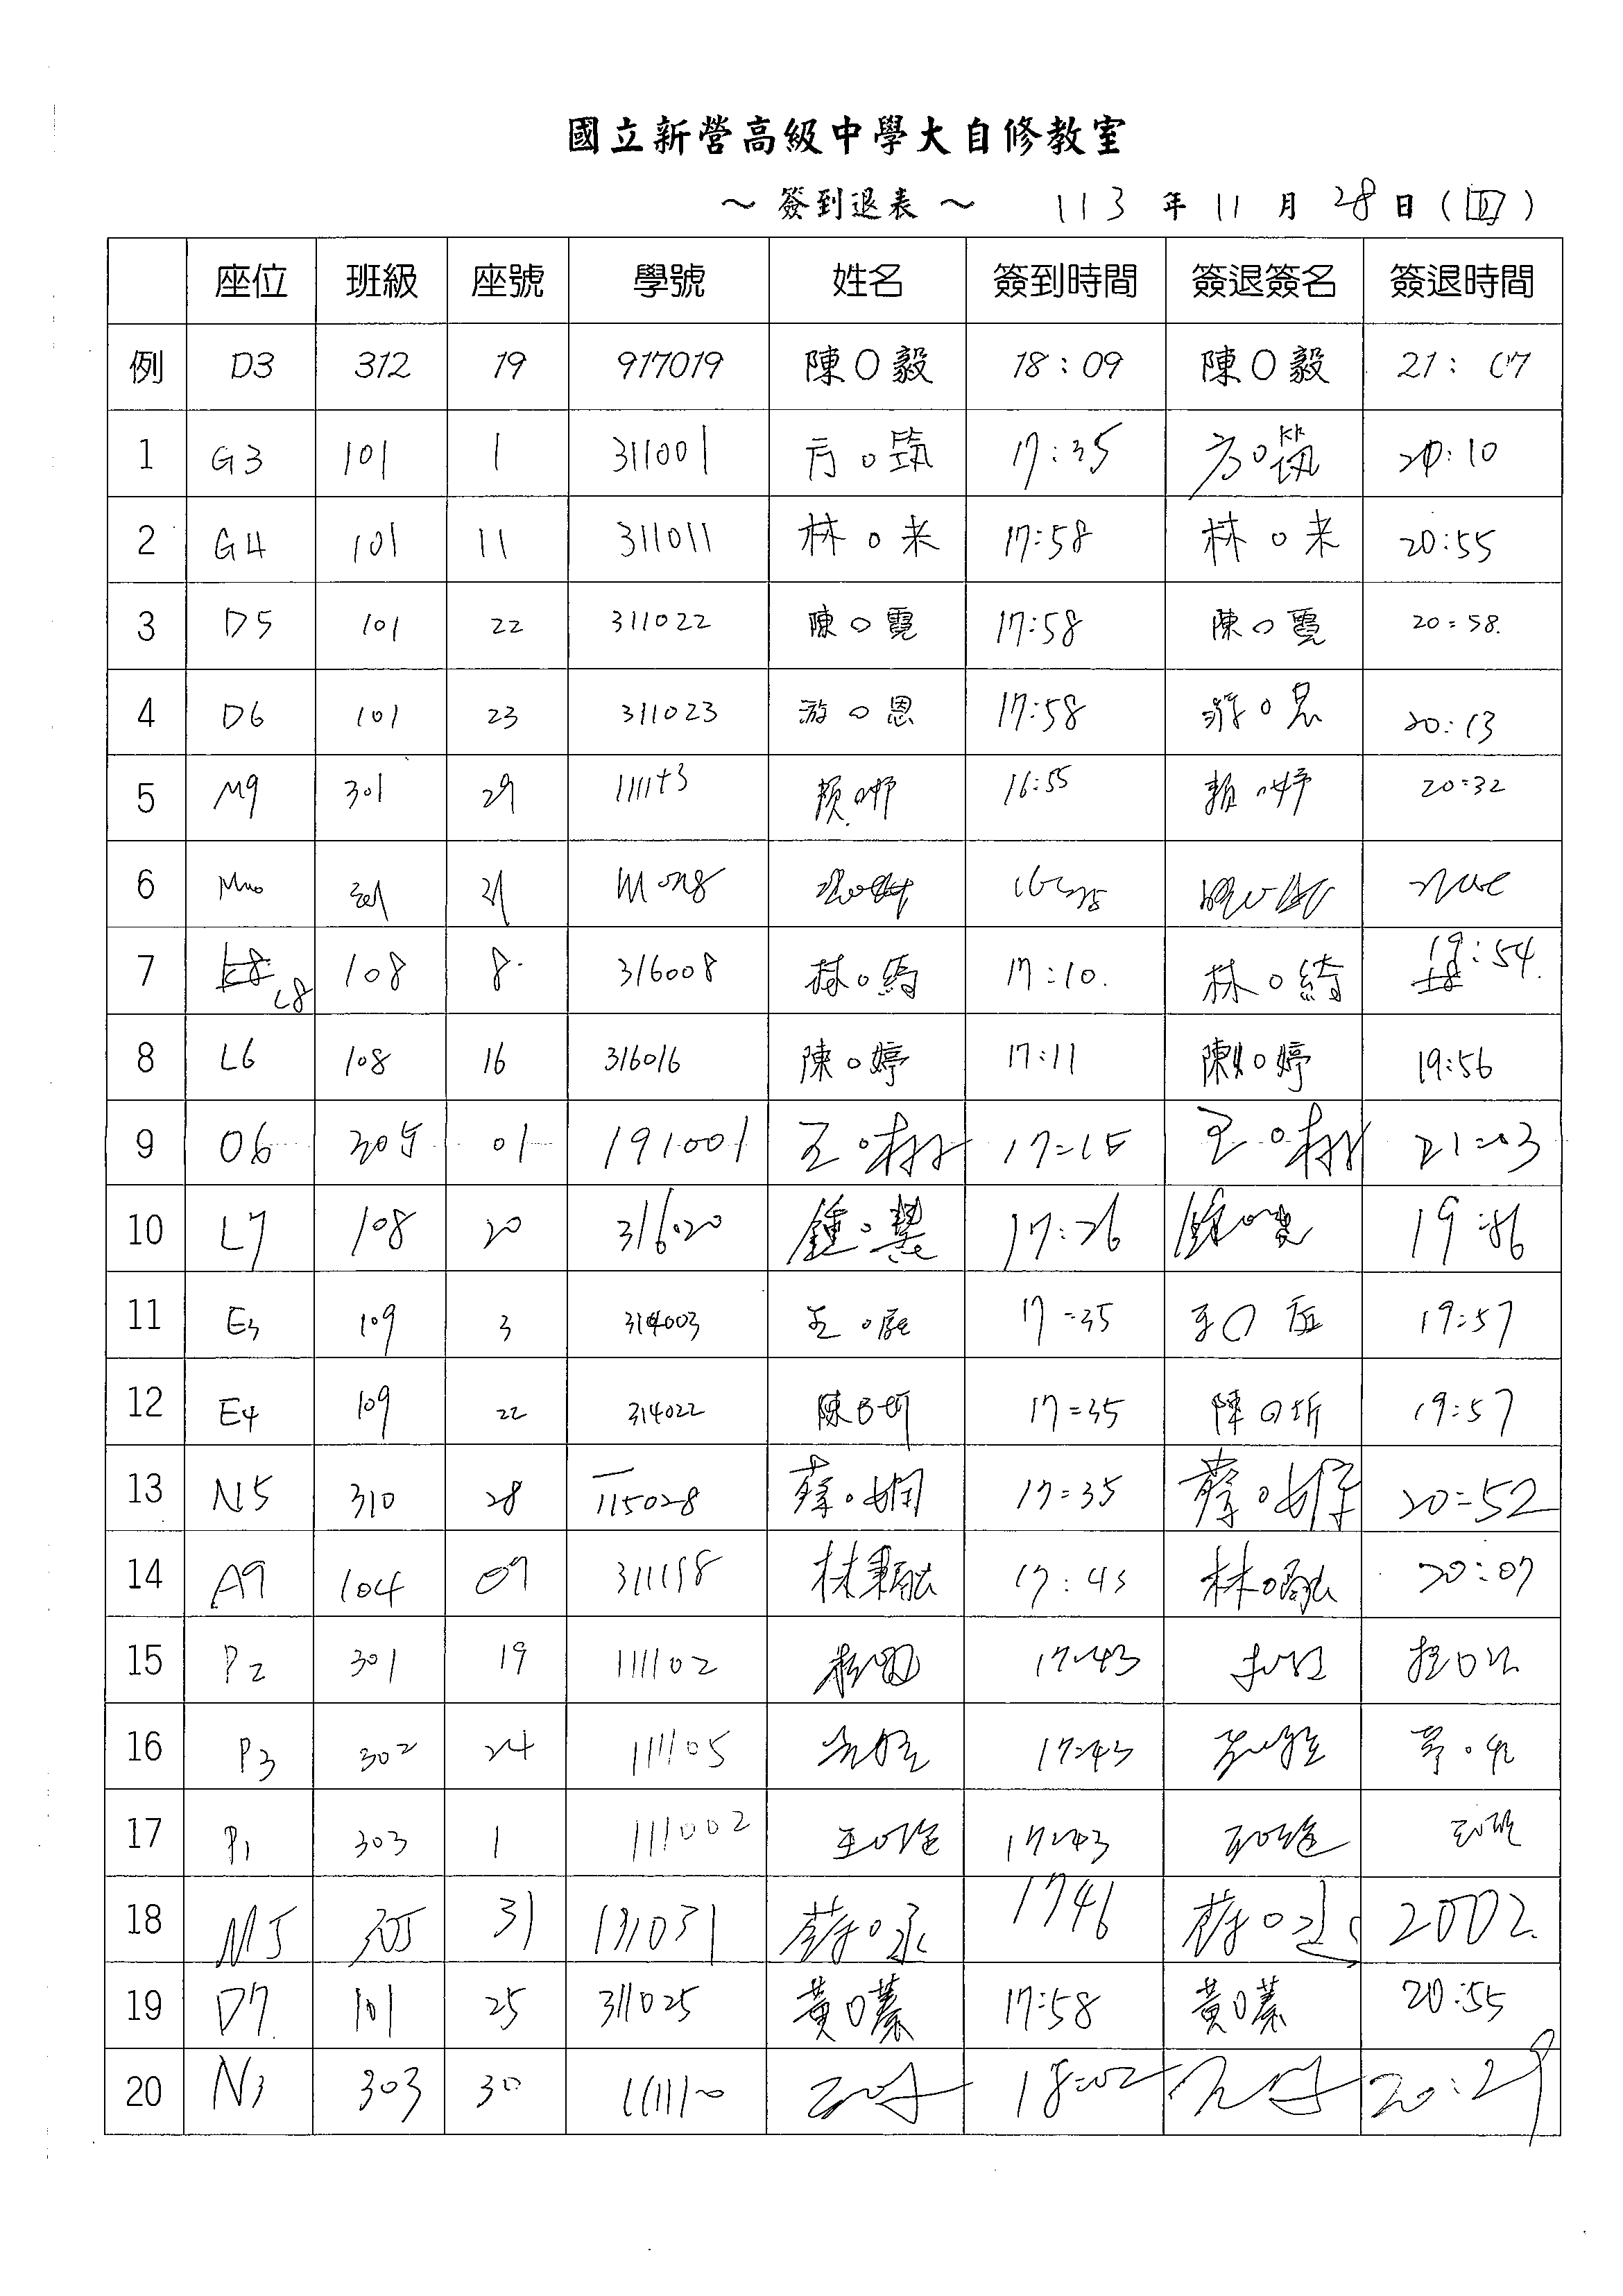 國立新營高級中學大自修教室
～ 簽到退表 ～ 113 年 11 月 28 日 (四)
座位 班級 座號 學號 姓名 簽到時間 簽退簽名 簽退時間
例 D3 312 19 917019 陳〇毅 18:09 陳〇毅 21:07
1 G3 101 1 311001 方〇筑 17:35 方〇筑 20:10
2 G4 101 11 311011 林〇来 17:58 林〇来 20:55
3 D5 101 22 311022 陳〇霓 17:58 陳〇霓 20:58
4 D6 101 23 311023 游〇恩 17:58 游〇恩 20:13
5 M9 301 29 賴〇 16:55 賴〇 20:32
6
7 L8 108 8 316008 林〇綺 17:10 林〇綺 19:54
8 L6 108 16 316016 陳〇婷 17:11 陳〇婷 19:56
9 O6 01 191001 王〇樹 17:15 王〇樹 21:03
10 L7 108 20 316020 鍾〇 17:26 19:
11 E3 109 3 314003 王〇 17:35 王〇 19:57
12 E4 109 22 314022 陳〇昕 17:35 陳〇昕 19:57
13 N5 310 28 115028 蔡〇嫻 17:35 蔡〇 20:52
14 A9 104 07 311158 林 17:43 林〇 20:07
15 P2 301 19 111102 17:43
16 P3 302 24 111105 17:43
17 P1 303 1 111002 王〇 17:43 王〇
18 M5 31 131031 蔡〇永 1746 蔡〇 2002
19 D7 101 25 311025 黃〇蓁 17:58 黃〇蓁 20:55
20 N3 303 30 18:02 20:29